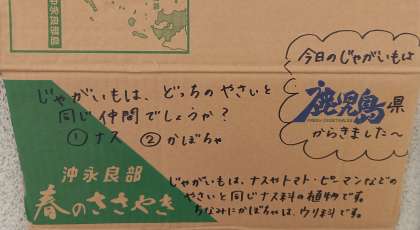 今日のじゃがいもは
鹿児島県
からきました〜
じゃがいもは、どっちのやさいと
同じ仲間でしょうか？
①ナス ②かぼちゃ
沖永良部
春のささやき
じゃがいもは、ナスやトマト・ピーマンなどの
やさいと同じナス科の植物です。
ちなみにかぼちゃは、ウリ科です。